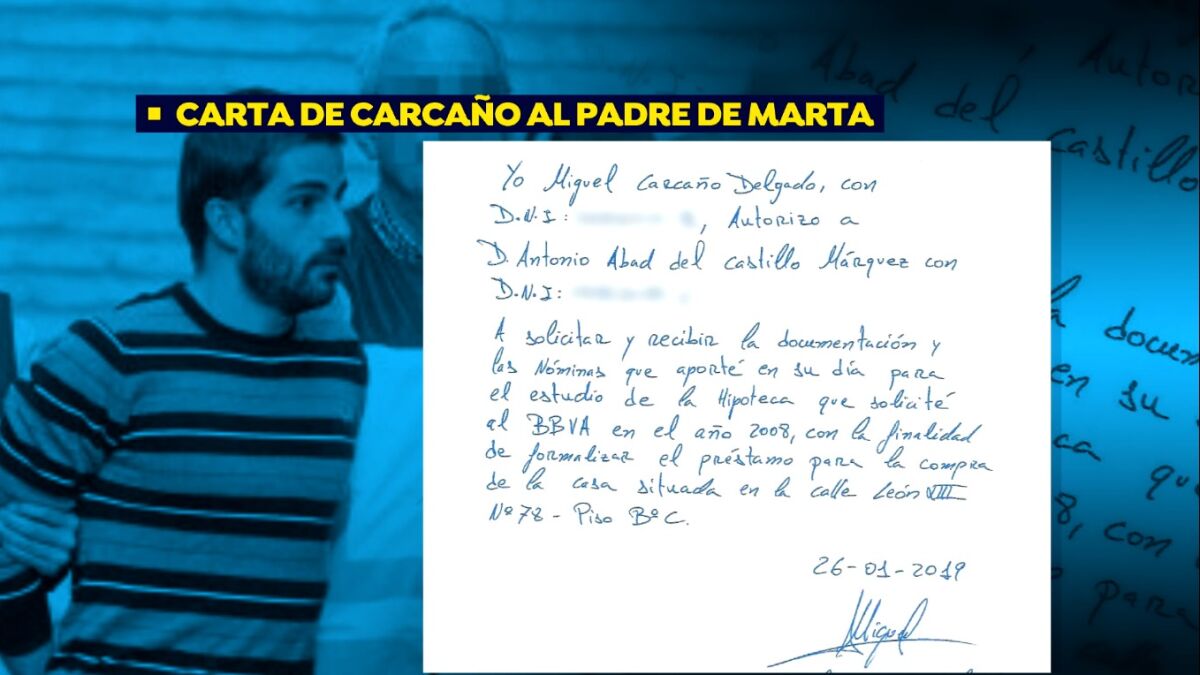 CARTA DE CARCAÑO AL PADRE DE MARTA
Yo Miguel Carcaño Delgado, con
D.N.I: , Autorizo a
D. Antonio Abad del Castillo Márquez con
D.N.I:
A solicitar y recibir la documentación y
las Nóminas que aporté en su día para
el estudio de la Hipoteca que solicité
al BBVA en el año 2008, con la finalidad
de formalizar el préstamo para la compra
de la casa situada en la calle León XIII
Nº 78 - Piso Bº C.
26-01-2019
Miguel
Autoriz
Abad del
Castillo
la docum
en su
ca que
8, con
para